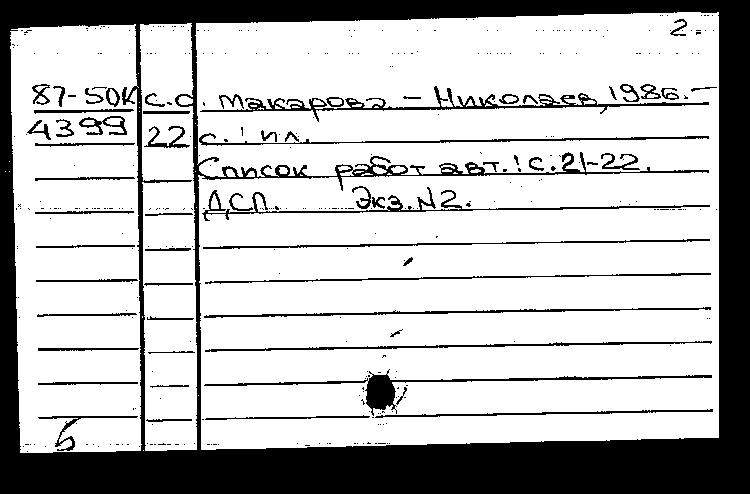 2.
87-50К с.о. Макарова – Николаев, 1986. –
4399 22 с.: ил.
Список работ авт.: с. 21-22.
ДСП. Экз. N2.
5